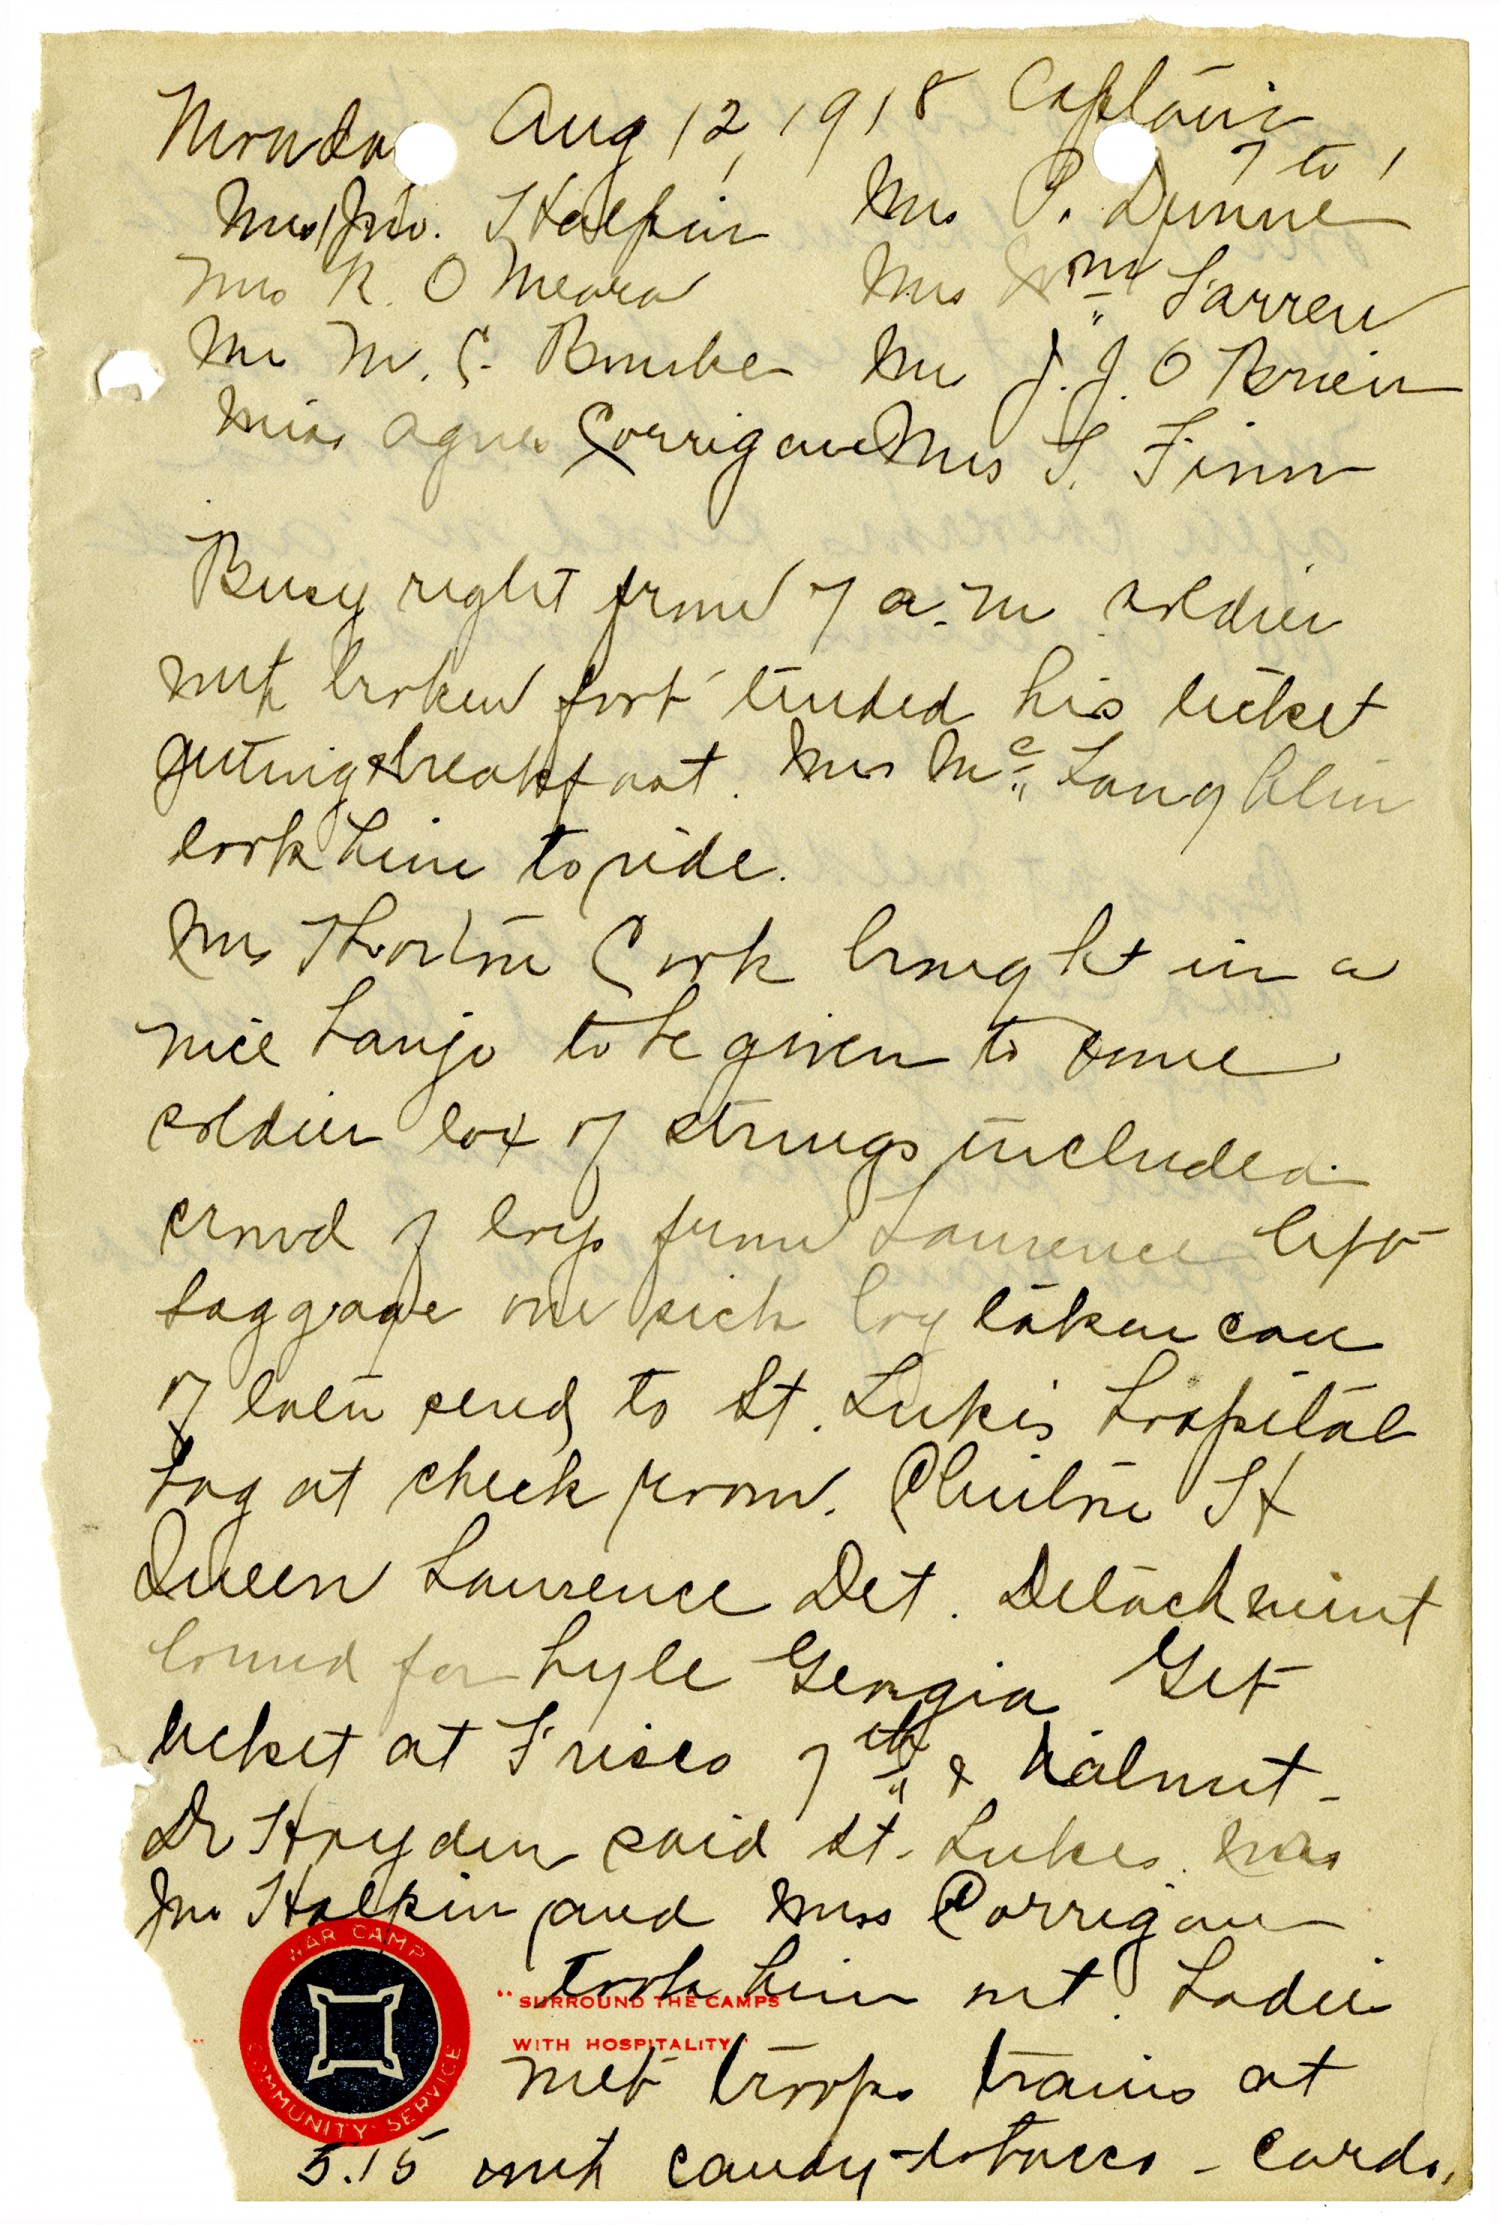 Monda Aug 12, 1918 Captain
7 to 1
Mrs Jno. Halpin Mrs P. Dunne
Mrs R. O Meara Mrs Wm Farren
Mrs M. C. Bourke Mrs J. J. O Brien
Miss Agnes Corrigan Mrs T. Finn
Busy right from 7 a.m soldier
with broken foot tended his ticket
getting breakfast. Mrs McLaughlin
took him to ride.
Mrs Thornton Cook brought in a
nice banjo to be given to some
soldier box of strings included.
crowd of boys from Laurence left
baggage one sick boy taken care
of later send to St. Luke's hospital
bag at check room. St
Queen Laurence Det. Detachment
bound for Lyle Georgia Get
ticket at Frisco 7th & Walnut -
Dr Hayden said St. Lukes. Mrs
Jno Halpin and Miss Corrigan
took him out. Ladies
met troops trains at
5.15 with candy - tobacco - cards.
WAR CAMP COMMUNITY SERVICE
"SURROUND THE CAMPS
WITH HOSPITALITY"